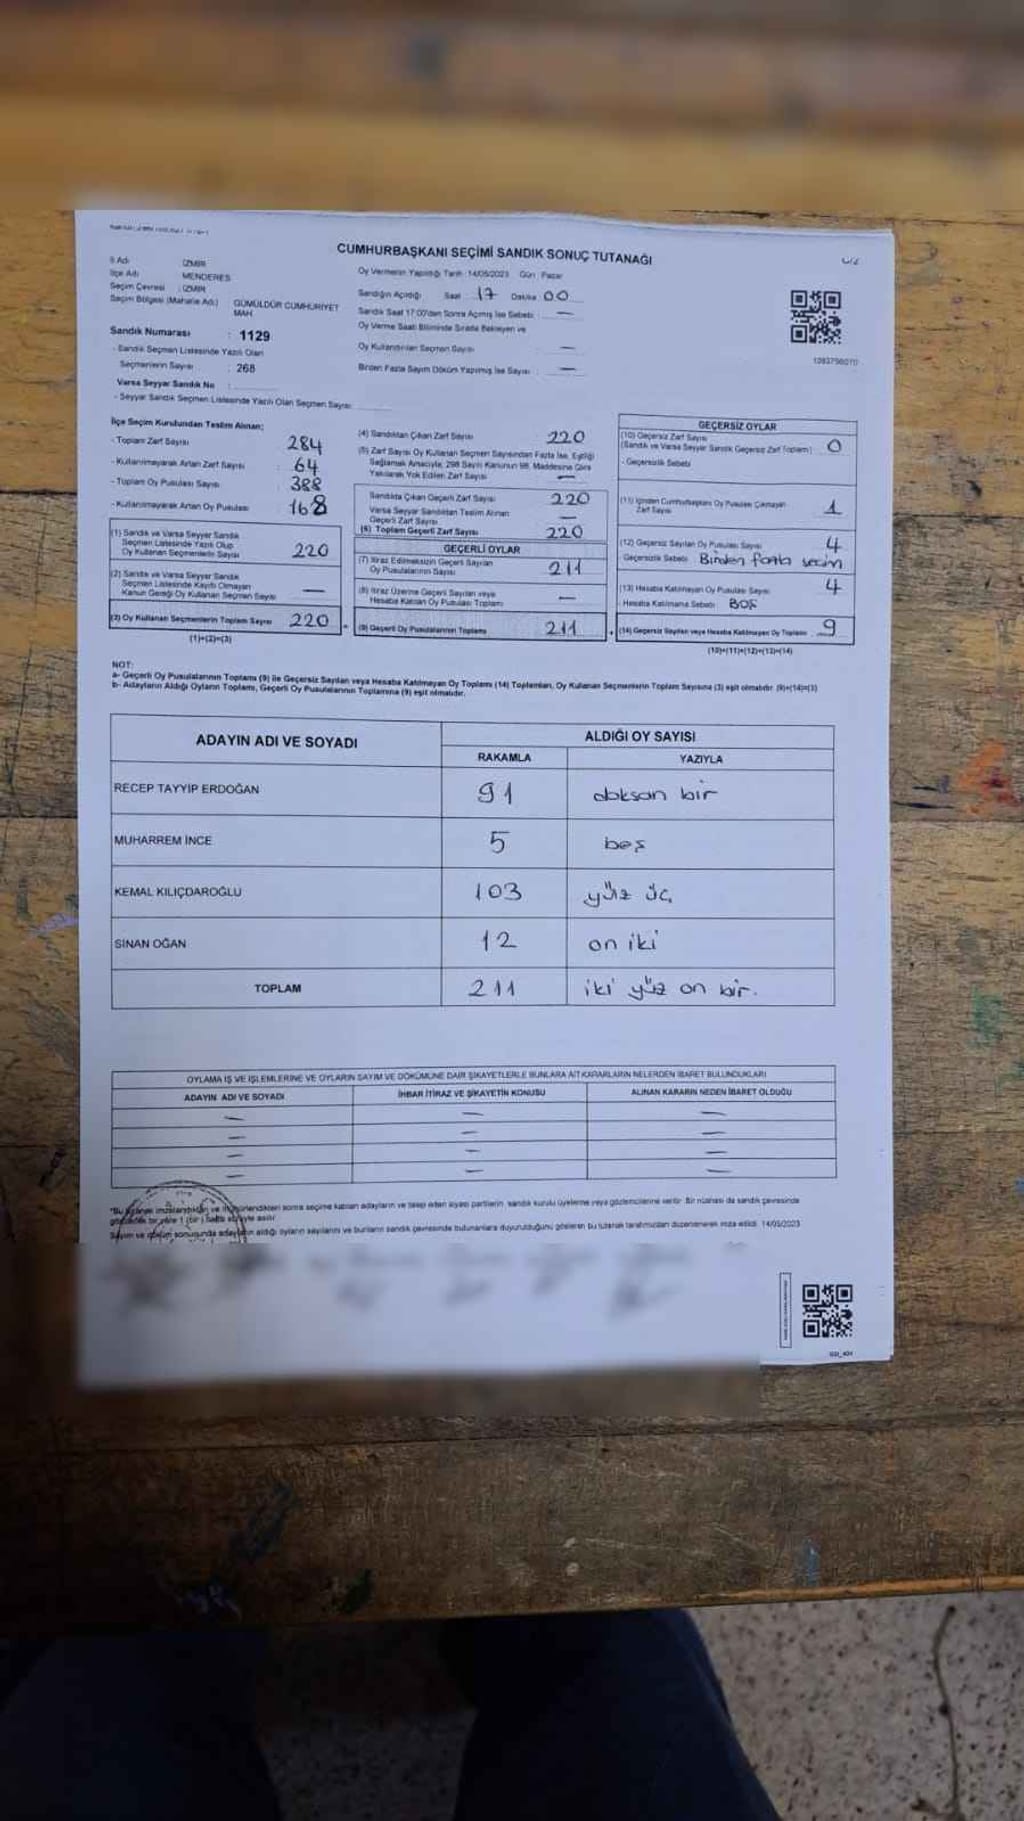 CUMHURBAŞKANI SEÇİMİ SANDIK SONUÇ TUTANAĞI
İli Adı İZMİR
İlçe Adı MENDERES
Seçim Çevresi : İZMİR
Seçim Bölgesi (Mahalle Adı) GÜMÜLDÜR CUMHURİYET MAH
Sandık Numarası : 1129
- Sandık Seçmen Listesinde Yazılı Olan
Seçmenlerin Sayısı : 268
Varsa Seyyar Sandık No :
- Seyyar Sandık Seçmen Listesinde Yazılı Olan Seçmen Sayısı:
Oy Vermenin Yapıldığı Tarih :14/05/2023 Gün : Pazar
Sandığın Açıldığı Saat : 17 Dakika 00
Sandık Saat 17:00'den Sonra Açılmış İse Sebebi : —
Oy Verme Saati Bitiminde Sırada Bekleyen ve
Oy Kullandırılan Seçmen Sayısı —
Birden Fazla Sayım Döküm Yapılmış İse Sayısı : —
1093756070
İlçe Seçim Kurulundan Teslim Alınan;
- Toplam Zarf Sayısı 284
- Kullanılmayarak Artan Zarf Sayısı 64
- Toplam Oy Pusulası Sayısı 388
- Kullanılmayarak Artan Oy Pusulası 168
(1) Sandık ve Varsa Seyyar Sandık
Seçmen Listesinde Yazılı Olup
Oy Kullanan Seçmenlerin Sayısı 220
(2) Sandık ve Varsa Seyyar Sandık
Seçmen Listesinde Kayıtlı Olmayan
Kanun Gereği Oy Kullanan Seçmen Sayısı —
(3) Oy Kullanan Seçmenlerin Toplam Sayısı 220
(1)+(2)=(3)
(4) Sandıktan Çıkan Zarf Sayısı 220
(5) Zarf Sayısı Oy Kullanan Seçmen Sayısından Fazla İse, Eşitliği
Sağlamak Amacıyla; 298 Sayılı Kanunun 98. Maddesine Göre
Yakılarak Yok Edilen Zarf Sayısı —
Sandıkta Çıkan Geçerli Zarf Sayısı 220
Varsa Seyyar Sandıktan Teslim Alınan
Geçerli Zarf Sayısı —
(6) Toplam Geçerli Zarf Sayısı 220
GEÇERLİ OYLAR
(7) İtiraz Edilmeksizin Geçerli Sayılan
Oy Pusulalarının Sayısı 211
(8) İtiraz Üzerine Geçerli Sayılan veya
Hesaba Katılan Oy Pusulası Toplamı —
(9) Geçerli Oy Pusulalarının Toplamı 211
GEÇERSİZ OYLAR
(10) Geçersiz Zarf Sayısı
(Sandık ve Varsa Seyyar Sandık Geçersiz Zarf Toplamı) 0
- Geçersizlik Sebebi
(11) İçinden Cumhurbaşkanı Oy Pusulası Çıkmayan
Zarf Sayısı 1
(12) Geçersiz Sayılan Oy Pusulası Sayısı 4
Geçersizlik Sebebi Birden fazla seçim
(13) Hesaba Katılmayan Oy Pusulası Sayısı 4
- Hesaba Katılmama Sebebi BOŞ
(14) Geçersiz Sayılan veya Hesaba Katılmayan Oy Toplamı 9
(10)+(11)+(12)+(13)=(14)
NOT:
a- Geçerli Oy Pusulalarının Toplamı (9) ile Geçersiz Sayılan veya Hesaba Katılmayan Oy Toplamı (14) Toplamları, Oy Kullanan Seçmenlerin Toplam Sayısına (3) eşit olmalıdır. (9)+(14)=(3)
b- Adayların Aldığı Oyların Toplamı, Geçerli Oy Pusulalarının Toplamına (9) eşit olmalıdır.
ADAYIN ADI VE SOYADI ALDIĞI OY SAYISI
RAKAMLA YAZIYLA
RECEP TAYYİP ERDOĞAN 91 doksan bir
MUHARREM İNCE 5 beş
KEMAL KILIÇDAROĞLU 103 yüz üç
SİNAN OĞAN 12 on iki
TOPLAM 211 iki yüz on bir.
OYLAMA İŞ VE İŞLEMLERİNE VE OYLARIN SAYIM VE DÖKÜMÜNE DAİR ŞİKAYETLERLE BUNLARA AİT KARARLARIN NELERDEN İBARET BULUNDUKLARI
ADAYIN ADI VE SOYADI İHBAR İTİRAZ VE ŞİKAYETİN KONUSU ALINAN KARARIN NEDEN İBARET OLDUĞU
— — —
— — —
— — —
— — —
*Bu tutanak imzalandıktan ve mühürlendikten sonra seçime katılan adayların ve talep eden siyasi partilerin sandık kurulu üyelerine veya gözlemcilerine verilir. Bir nüshası da sandık çevresinde
Sayım ve döküm sonucunda adayların aldığı oyların sayılarını ve bunların sandık çevresinde bulunanlara duyurulduğunu gösteren bu tutanak tarafımızdan düzenlenerek imza edildi. 14/05/2023